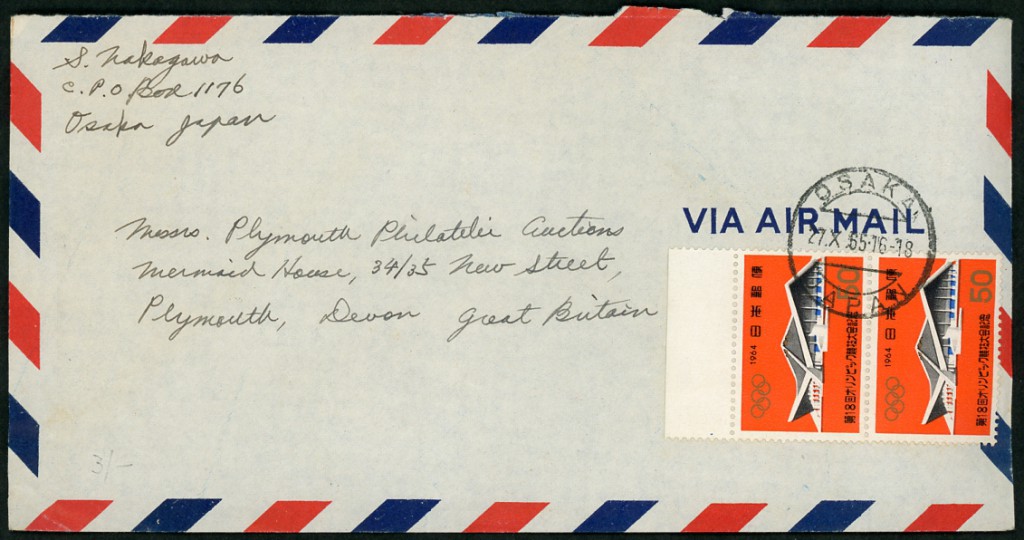 S. Nakagawa
C. P. O Box 1176
Osaka Japan
Messrs. Plymouth Philatelic Auctions
Mermaid House, 34/35 New Street,
Plymouth, Devon Great Britain
VIA AIR MAIL
OSAKA
27.X.65.16-18
JAPAN
日本郵便
1964
50
第18回オリンピック競技大会記念
日本郵便
1964
50
第18回オリンピック競技大会記念
3/-